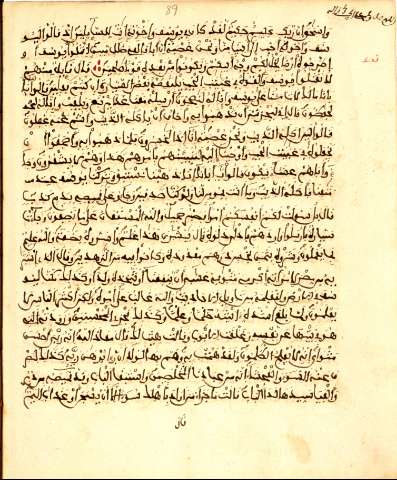 89
وإسحق إن ربك عليم حكيم لقد كان في يوسف وإخوته ءايت للسائلين إذ قالوا ليو
سف وأخوه أحب إلى أبينا منا ونحن عصبة إن أبانا لفي ضلل مبين اقتلوا يوسف أو
اطرحوه أرضا يخل لكم وجه أبيكم وتكونوا من بعده قوما صلحين قال قائل منهم
لا تقتلوا يوسف وألقوه في غيبت الجب يلتقطه بعض السيارة إن كنتم فعلين قالوا يأ
بانا ما لك لا تأمنا على يوسف وإنا له لنصحون أرسله معنا غدا يرتع ويلعب وإنا له
لحفظون قال إني ليحزنني أن تذهبوا به وأخاف أن يأكله الذيب وأنتم عنه غفلون
قالوا لئن أكله الذيب ونحن عصبة إنا إذا لخسرون فلما ذهبوا به وأجمعوا أن
يجعلوه في غيبت الجب وأوحينا إليه لتنبئنهم بأمرهم هذا وهم لا يشعرون وجاءو
أباهم عشاء يبكون قالوا يأبانا إنا ذهبنا نستبق وتركنا يوسف عند مت
عنا فأكله الذيب وما أنت بمؤمن لنا ولو كنا صدقين وجاءو على قميصه بدم كذب
قال بل سولت لكم أنفسكم أمرا فصبر جميل والله المستعان على ما تصفون وجاءت
سيارة فأرسلوا واردهم فأدلى دلوه قال يبشرى هذا غلم وأسروه بضعة والله عليم
بما يعملون وشروه بثمن بخس درهم معدودة وكانوا فيه من الزهدين وقال الذي اشتر
يه من مصر لامرأته أكرمي مثويه عسى أن ينفعنا أو نتخذه ولدا وكذلك مكنا ليو
سف في الأرض ولنعلمه من تأويل الأحاديث والله غالب على أمره ولكن أكثر الناس لا
يعلمون ولما بلغ أشده ءاتينه حكما وعلما وكذلك نجزي المحسنين ورودته التي
هو في بيتها عن نفسه وغلقت الأبوب وقالت هيت لك قال معاذ الله إنه ربي أحسن
مثواي إنه لا يفلح الظلمون ولقد همت به وهم بها لولا أن رءا برهن ربه كذلك لنصر
ف عنه السوء والفحشاء إنه من عبادنا المخلصين واستبقا الباب وقدت قميصه من دبر
وألفيا سيدها لدا الباب قالت ما جزاء من أراد بأهلك سوءا إلا أن يسجن أو عذاب أليم
قال